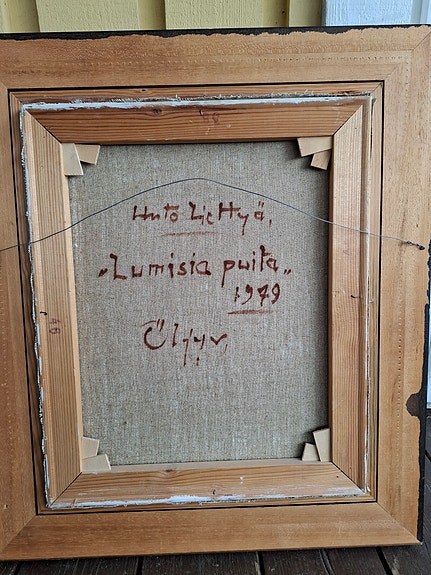 Unto Liettyä,
„Lumisia puita„
1979
Öljyv,